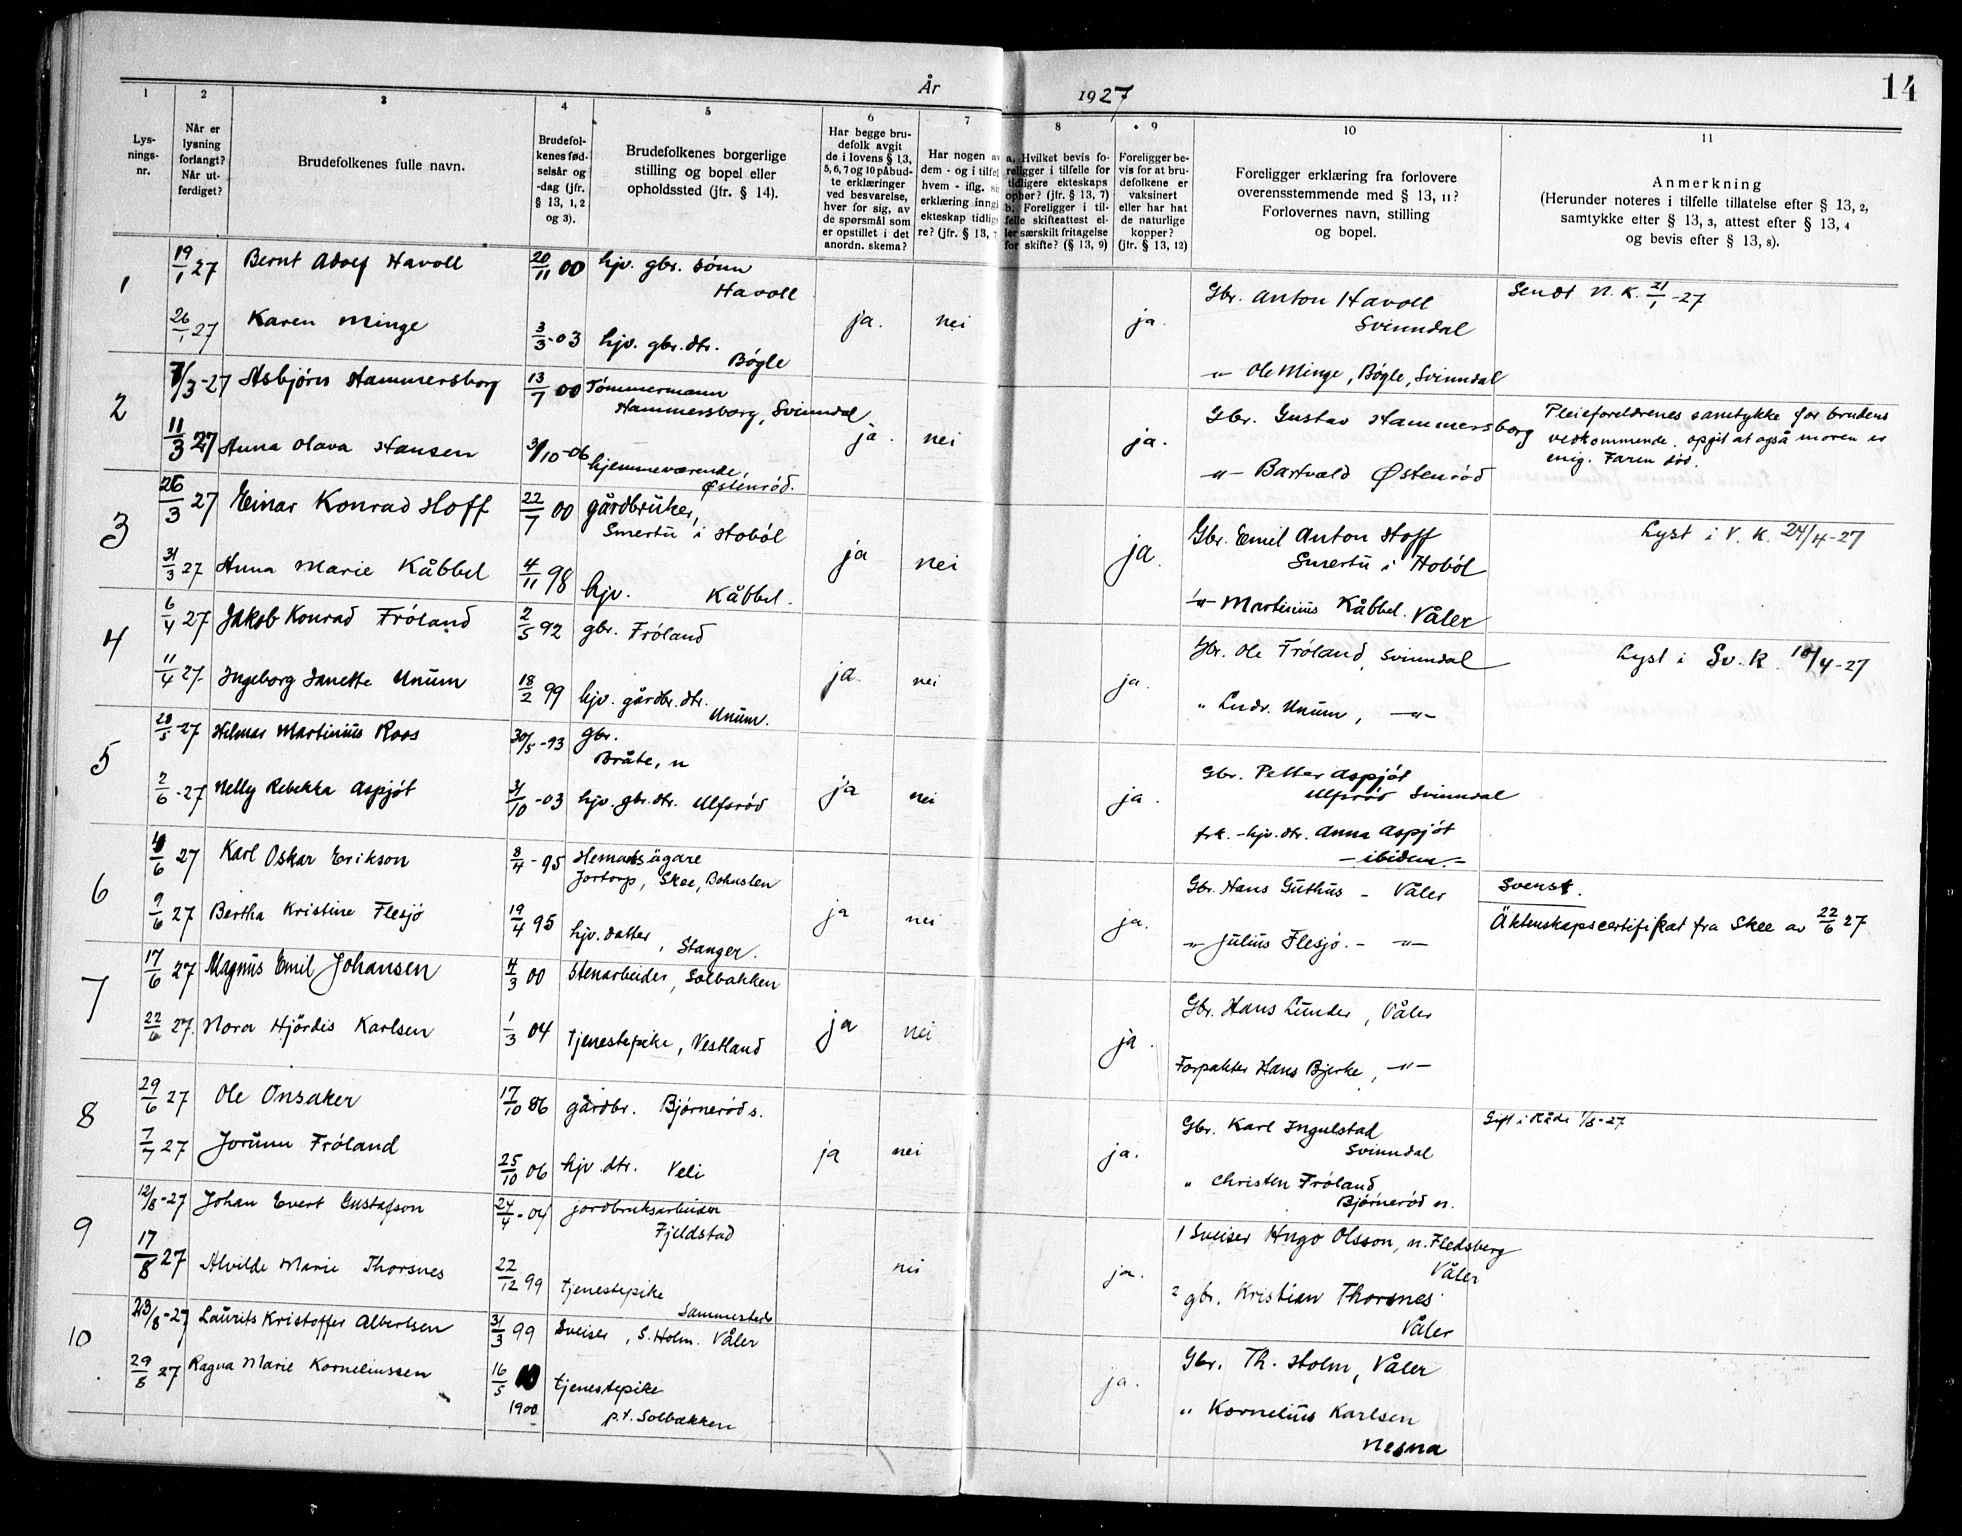 År 1927
14
1
2
3
4
5
6
7
8
9
10
11
Lys-
nings-
nr.
Når er
lysning
forlangt?
Når ut-
ferdiget?
Brudefolkenes fulle navn.
Brudefol-
kenes fød-
selsår og
-dag (jfr.
§ 13, 1, 2
og 3).
Brudefolkenes borgerlige
stilling og bopel eller
opholdssted (jfr. § 14).
Har begge bru-
defolk avgit
de i lovens § 13,
5, 6, 7 og 10 påbud-
te erklæringer
ved besvarelse,
hver for sig, av
de spørsmål som
er opstillet i det
anordn. skema?
Har nogen av
dem - og i tilfel
hvem - iflg.
erklæring inng
ekteskap tidlig
re? (jfr. § 13,
a. Hvilket bevis fo-
religger i tilfelle for
tidligere ekteskaps
ophør? (jfr. § 13, 7)
b. Foreligger i til-
felle skifteattest el-
ler særskilt fritagelse
for skifte? (§ 13, 9)
Foreligger be-
vis for at bru-
defolkene er
vaksinert
eller har hat
de naturlige
kopper?
(jfr. § 13, 12)
Foreligger erklæring fra forlovere
overensstemmende med § 13, 11?
Forlovernes navn, stilling
og bopel.
Anmerkning
(Herunder noteres i tilfelle tillatelse efter § 13, 2,
samtykke efter § 13, 3, attest efter § 13, 4
og bevis efter § 13, 8).
1
19/1 27
Bernt Adolf Havoll
20/11 00
hjv. gbr. sønn
Havoll
26/1 27
Karen Minge
3/3-03
hjv. gbr. dtr.
Bøgle
ja.
nei
ja.
Gbr. Anton Havoll
Svinndal
-"- Ole Minge, Bøgle, Svinndal
Sendt N. K. 21/1-27
2
/3-27
Asbjørn Hammersborg
13/7 00
Tømmermann
Hammersborg, Svinndal
11/3 27
Anna Olava Hansen
/10-06
hjemmeværende,
Østenrød.
ja.
nei
ja.
Gbr. Gustav Hammersborg
-"- Bartvald Østenrød
Pleieforeldrenes samtykke for brudens
vedkommende. opgit at også moren er
enig. Faren død.
3
26/3 27
Einar Konrad Hoff
22/7 00
gårdbruker,
Smertu i Hobøl
31/3 27
Anna Marie Kåbbel
4/11 98
hjv. Kåbbel.
ja
nei
ja.
Gbr. Emil Anton Hoff
Smertu i Hobøl
-"- Martinius Kåbbel. Våler
Lyst i V. K. 24/4-27
4
6/4 27
Jakob Konrad Frøland
2/5 92
gbr. Frøland
11/4 27
Ingeborg Janette Unum
18/2 99
hjv. gårdbr. dtr.
Unum.
ja
nei
ja.
Gbr. Ole Frøland, Svinndal
" Ludv. Unum, -"-
Lyst i Sv. K. /4-27
5
/5-27
Hilmar Martinius Roos
30/5-93
gbr.
Bråte, n
2/6-27
Nelly Rebekka Aspjøt
31/10-03
hjv. gbr. dtr. Ulfsrød
ja
nei
ja.
Gbr. Petter Aspjøt
Ulfsrød Svinndal
frk. - hjv. dtr. Anna Aspjøt
- ibidem. -
6
/6 27
Karl Oskar Erikson
8/4-95
Hemansägare
Jortorp, Skee, Bohuslen
9/6 27
Bertha Kristine Flesjø
19/4 95
hjv. datter, Stanger.
ja
nei
ja.
Gbr. Hans Guthus - Våler
-"- Julius Flesjø. - -"-
Svensk.
Äktenskapscertifikat fra Skee av 22/6 27
7
17/6 27
Magnus Emil Johansen
4/3 00
Stenarbeider, Solbakken
22/6 27.
Nora Hjørdis Karlsen
1/3 04
tjenestepike, Vestland
ja
nei
ja.
Gbr. Hans Lunder, Våler
Forpakter Hans Bjerke, -"-
8
29/6 27
Ole Onsaker
17/10 86
gårdbr. Bjørnerød s.
7/7 27
Jorunn Frøland
25/10 06
hjv. dtr. Veli
ja
nei
ja.
Gbr. Karl Ingulstad
Svinndal
" Christen Frøland
Bjørnerød n.
Gift i Råde 1/8-27
9
12/8-27
Johan Evert Gustafson
24/4-04
jordbruksarbeider
Fjeldstad
17/8 27
Alvilde Marie Thorsnes
22/12 99
tjenestepike
Sammesteds
nei
ja.
1 Sveiser Hugo Olsson, n. Fledsberg
Våler
2 gbr. Kristian Thorsnes
Våler
10
23/8-27
Laurits Kristoffer Albertsen
31/3 99
Sveiser, S. Holm. Våler
29/8 27
Ragna Marie Korneliussen
16/5
1900
tjenestepike
p.t. Solbakken
ja.
Gbr. Th. Holm, Våler
" Kornelius Karlsen
Nesna